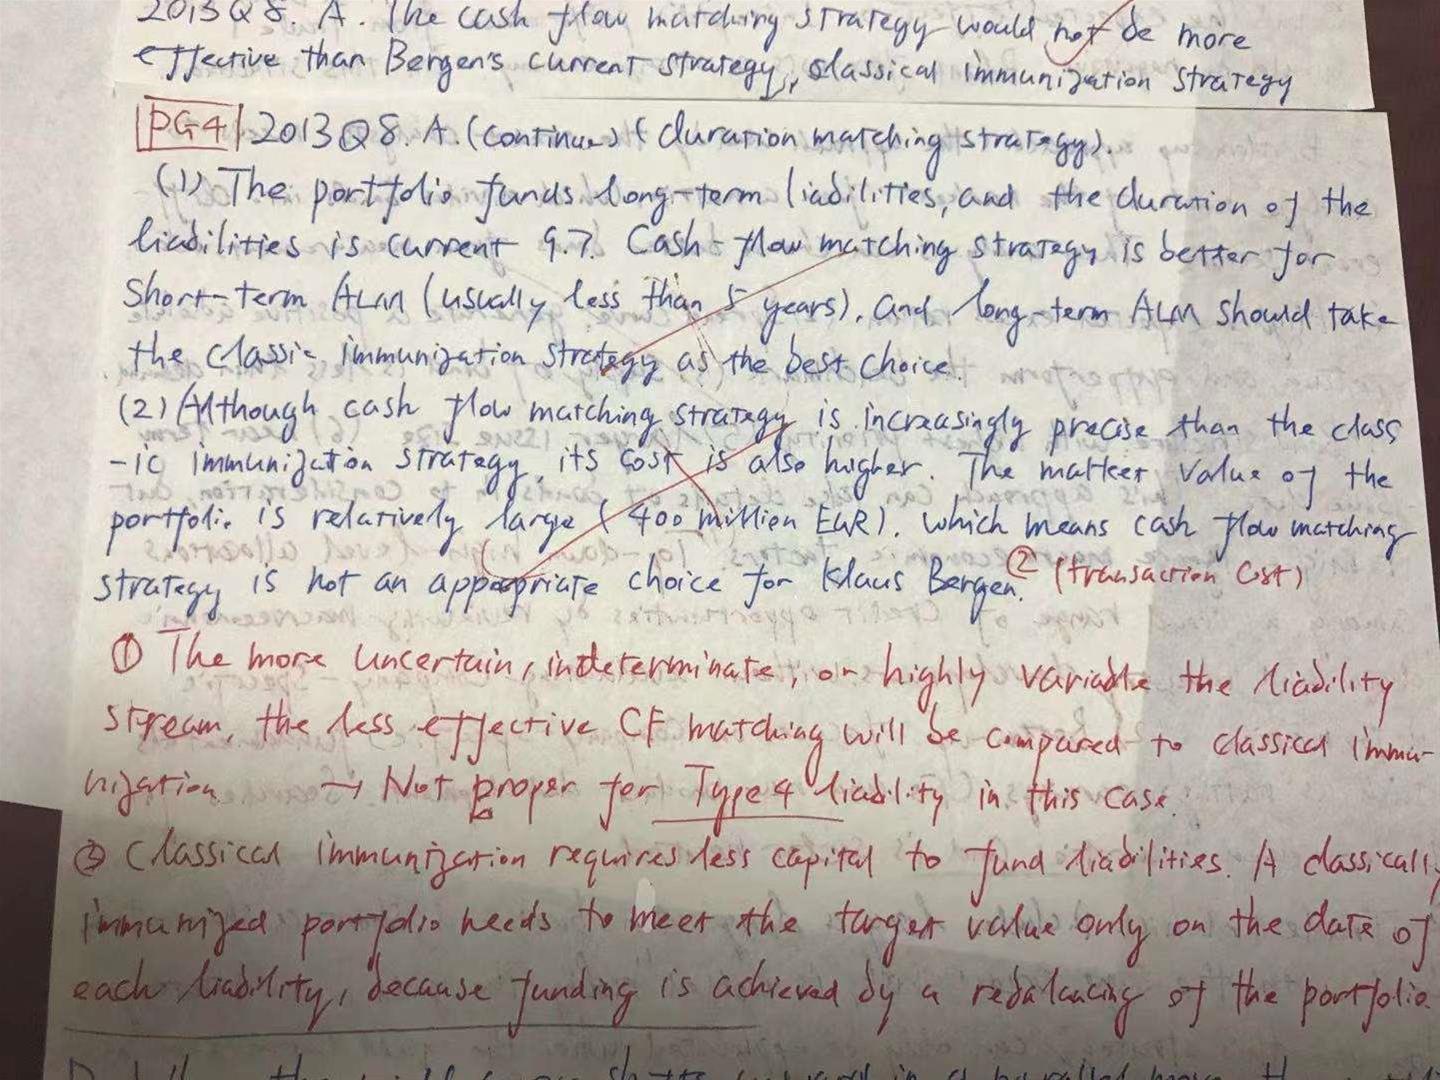 2013 Q 8. A. The cash flow matching strategy would not be more
effective than Bergen's current strategy, classical immunization strategy
PG4 2013 Q 8. A. (continue) (duration matching strategy).
(1) The portfolio funds long-term liabilities, and the duration of the
liabilities is current 9.7. Cash-flow matching strategy is better for
short-term ALM (usually less than 5 years), and long-term ALM should take
the classic immunization strategy as the best choice.
(2) Although cash flow matching strategy is increasingly precise than the class
-ic immunization strategy, its cost is also higher. The market value of the
portfolio is relatively large (400 million EUR). which means cash flow matching
strategy is not an appropriate choice for Klaus Bergen. ② (transaction cost)
① The more uncertain, indeterminate, or highly variable the liability
stream, the less effective CF matching will be compared to classical immu-
nization → Not proper for Type 4 liability in this case.
③ Classical immunization requires less capital to fund liabilities. A classically
immunized portfolio needs to meet the target value only on the date of
each liability, because funding is achieved by a rebalancing of the portfolio